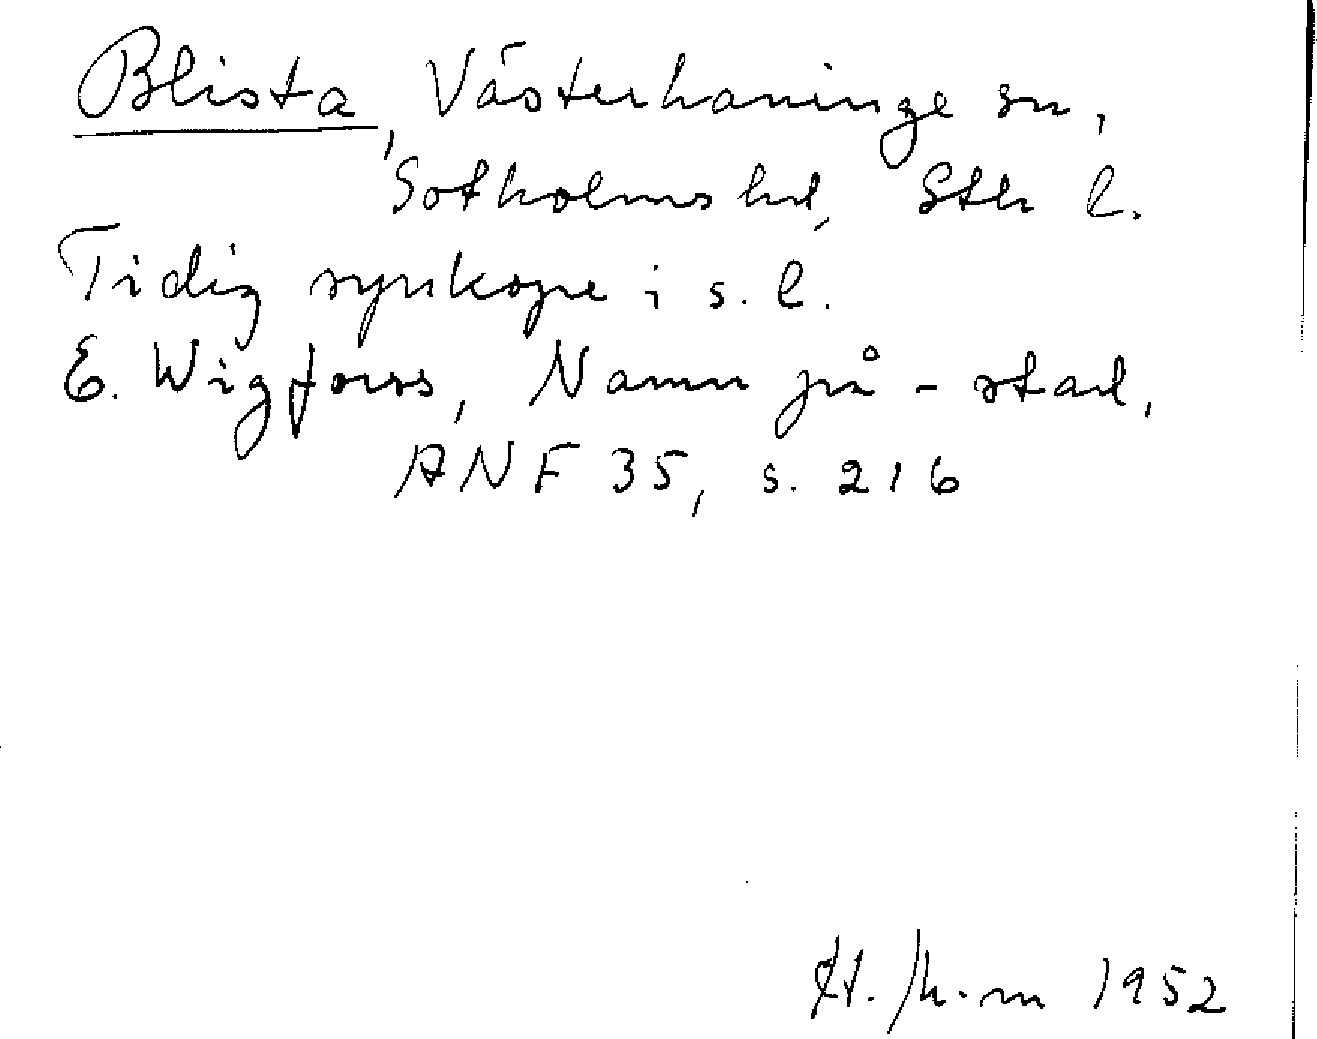 Blista, Västerhaninge sn,
Sotholms hd, Sth l.
Tidig synkope i s. l.
E. Wigforss, Namn på -stad,
ANF 35, s. 216
1952